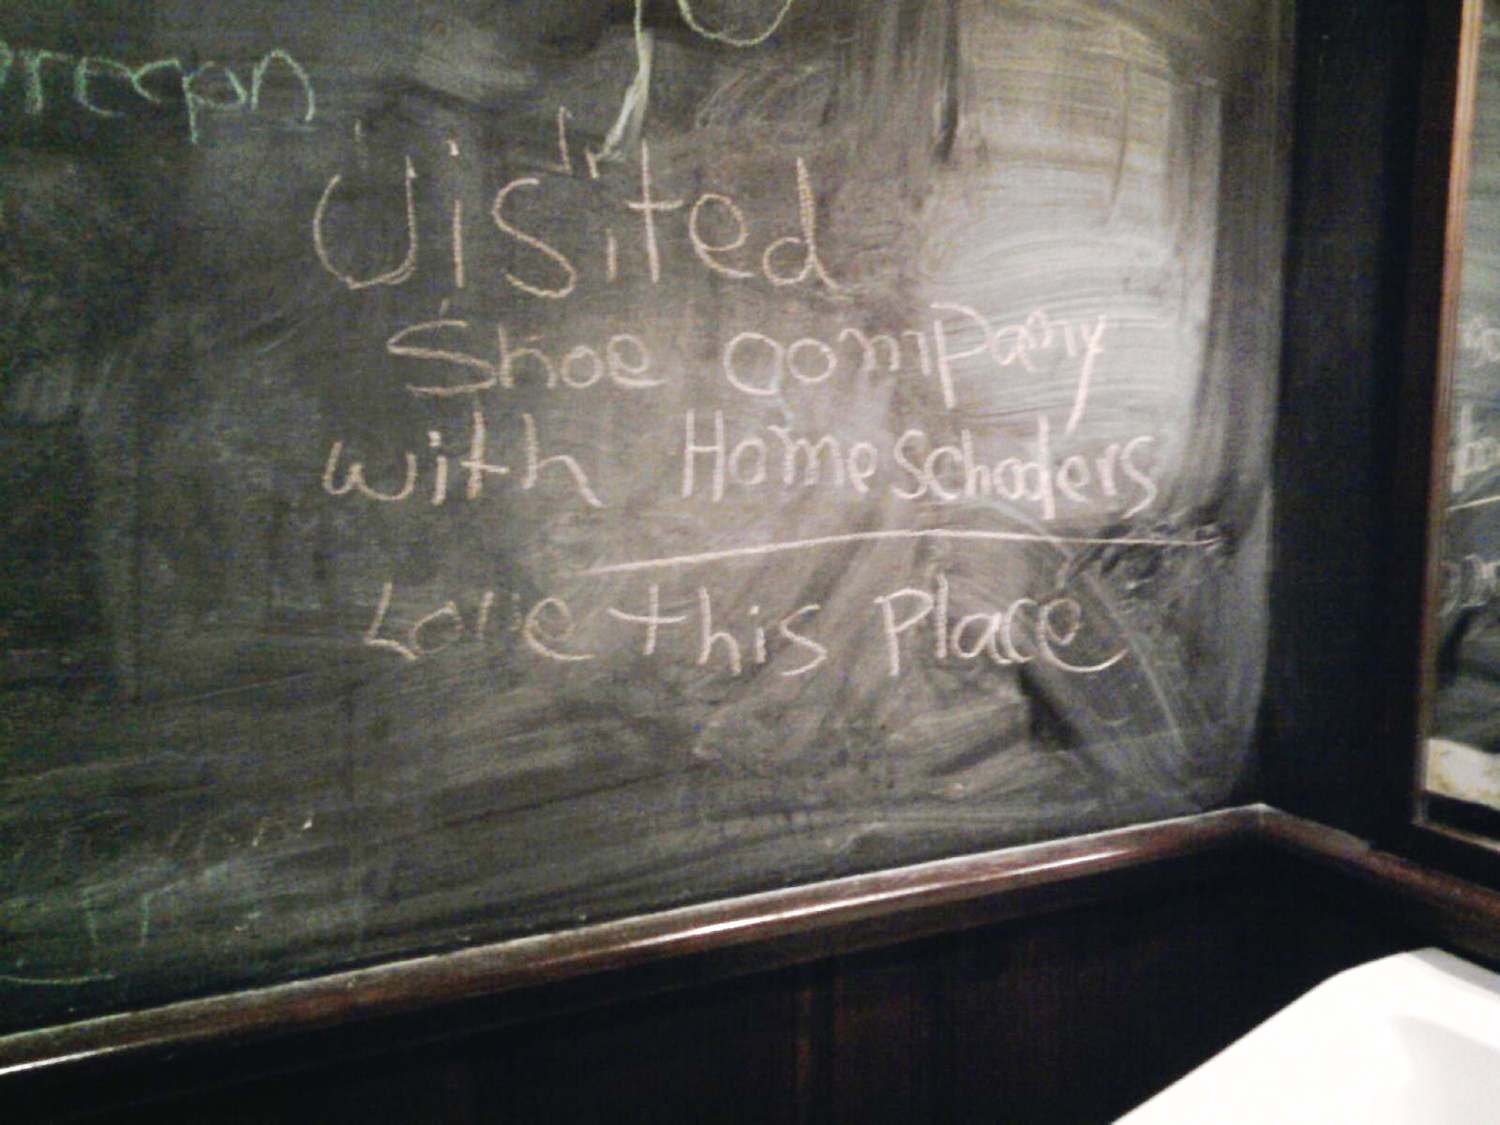 oregon
Visited
Shoe company
with Homeschoolers
Love this Place